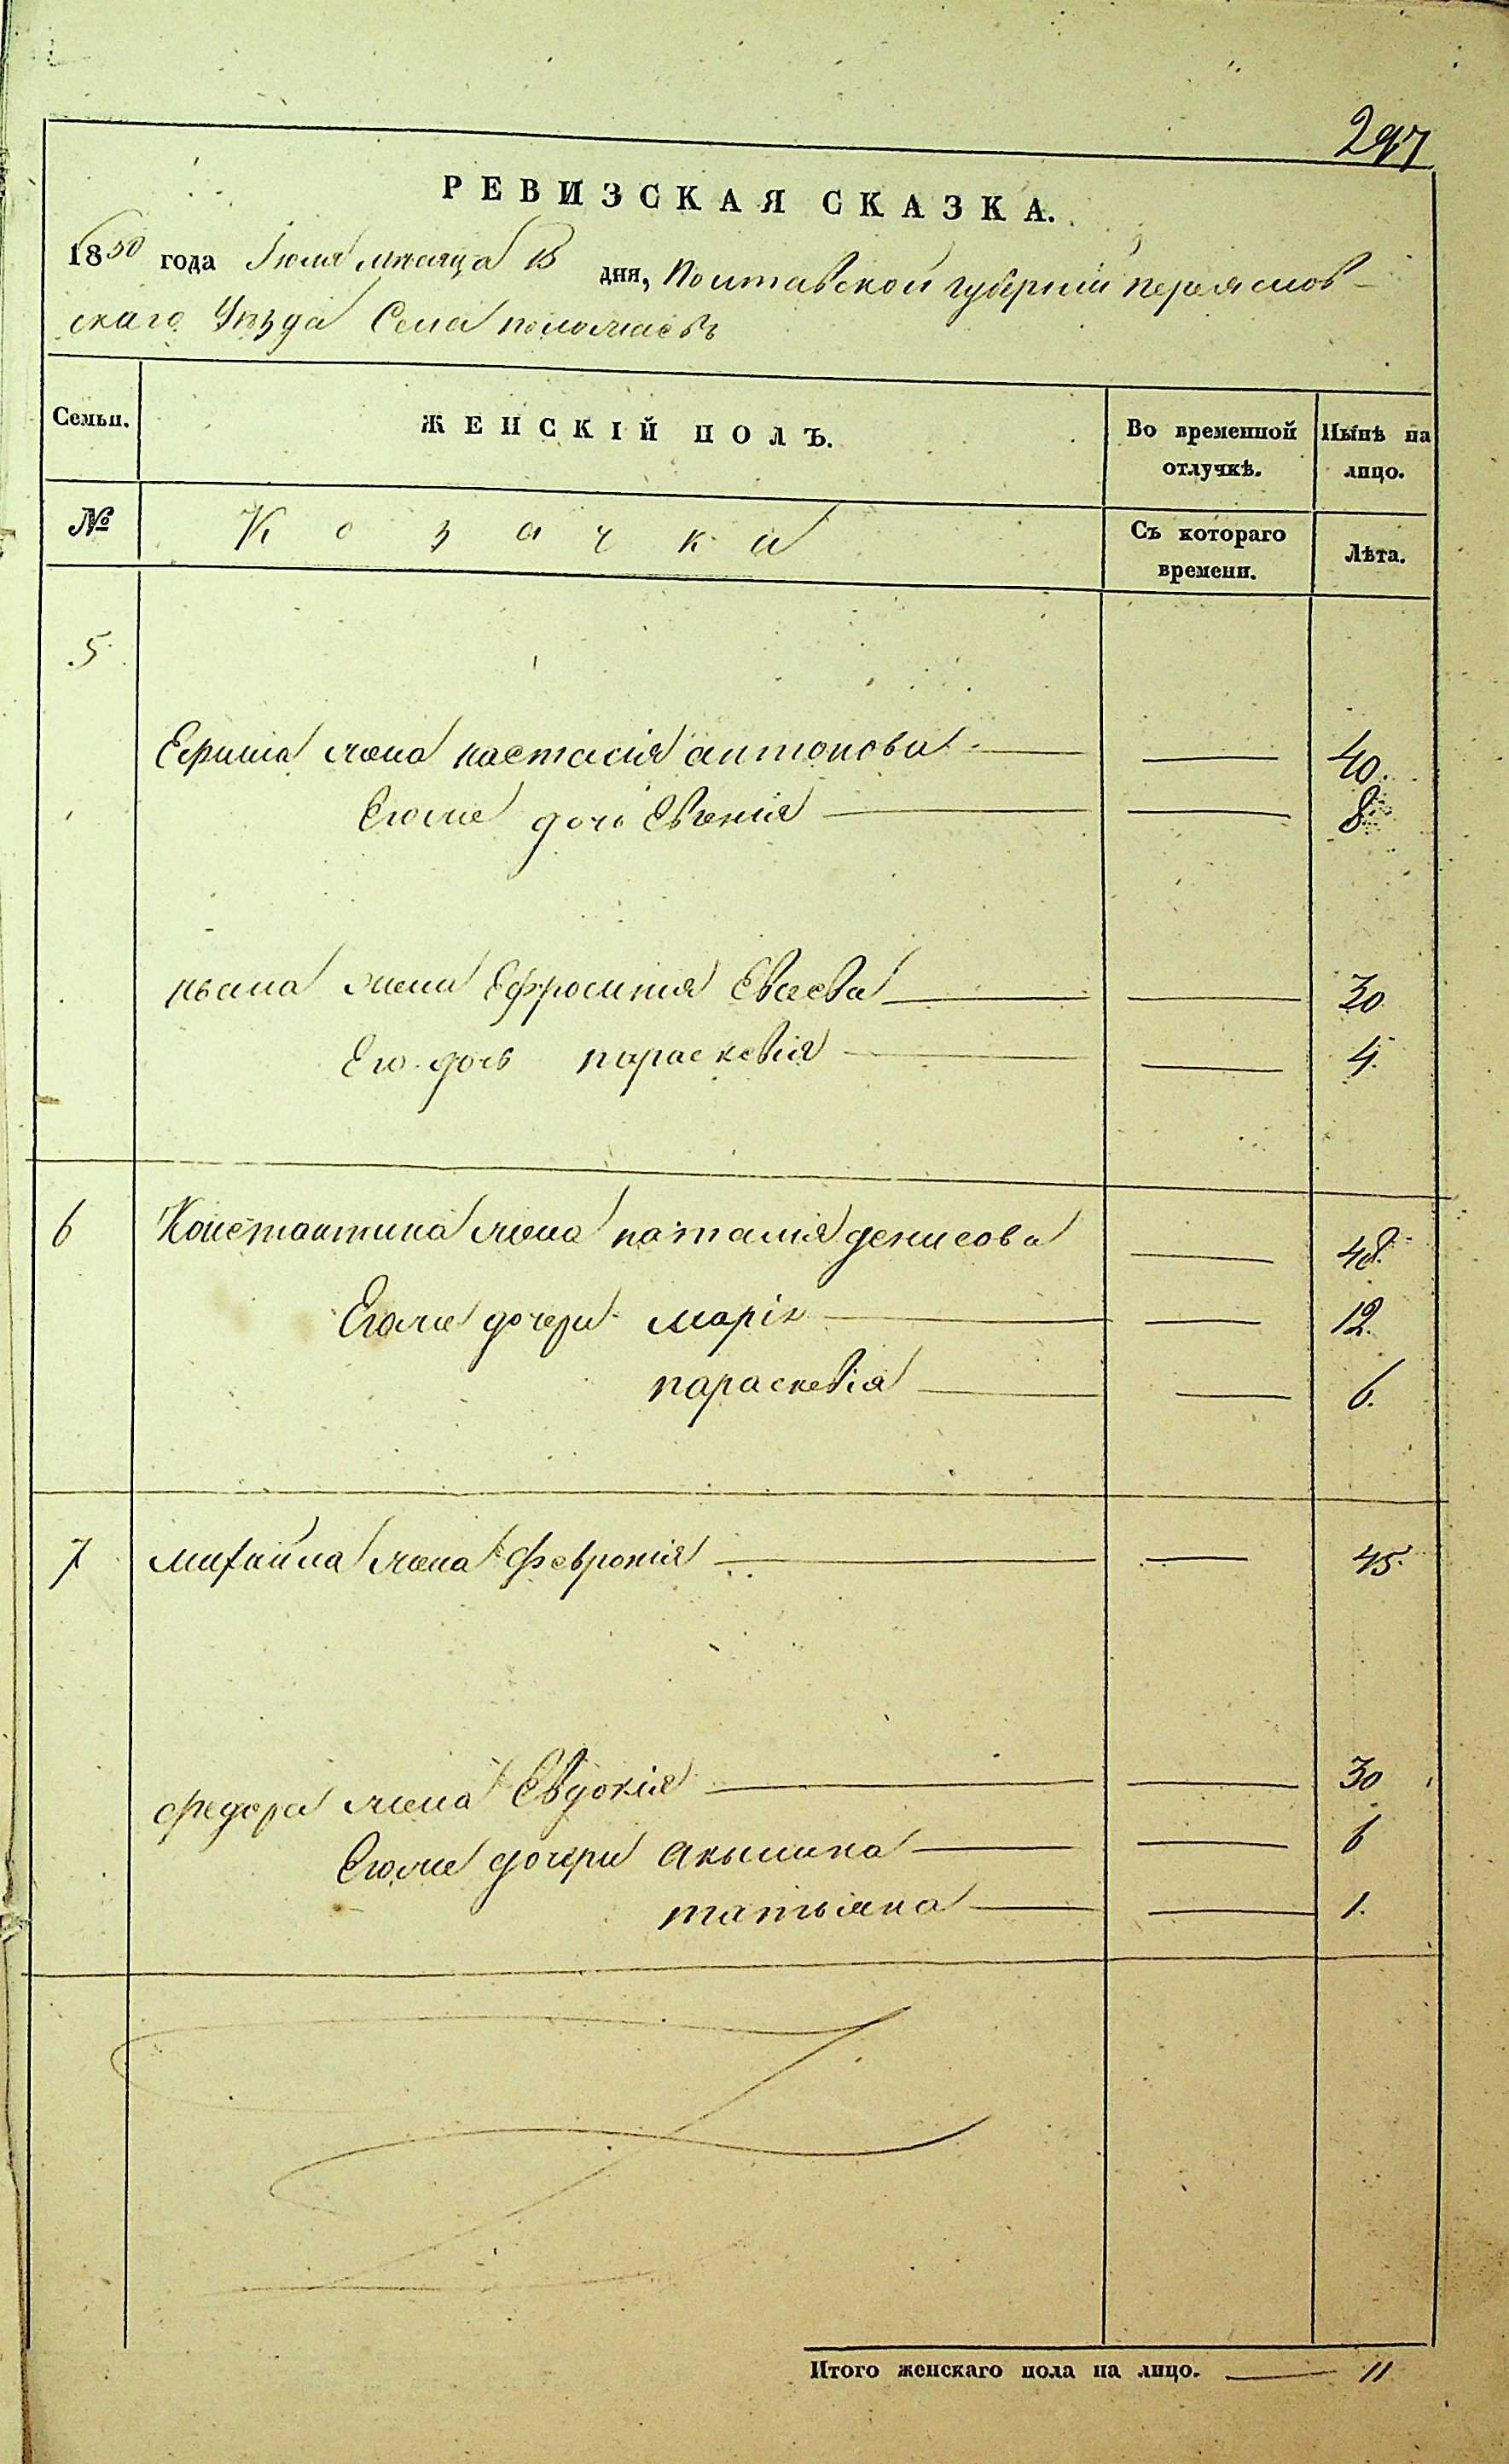 297
РЕВИЗСКАЯ СКАЗКА.
1850 года Іюля мѣсяца 15 дня, Полтавской губерніи переяслов-
скаго Уѣзда Села
Семьи. ЖЕНСКІЙ ПОЛЪ. Во временной отлучкѣ. Нынѣ на лицо.
№ Козачки Съ котораго времени. Лѣта.
5
Ефима жена настасія антонова 40.
Егоже дочь Евгенія 8.
жена Ефросинія 30
Его дочь параскевія 4.
6 Константина жена наталія денисова 48.
Егоже дочери марія 12.
параскевія 6.
7 михайла жена Февронія 45.
федора жена Евдокія 30
Егоже дочери акылина 6
татьяна 1.
Итого женскаго пола на лицо. 11